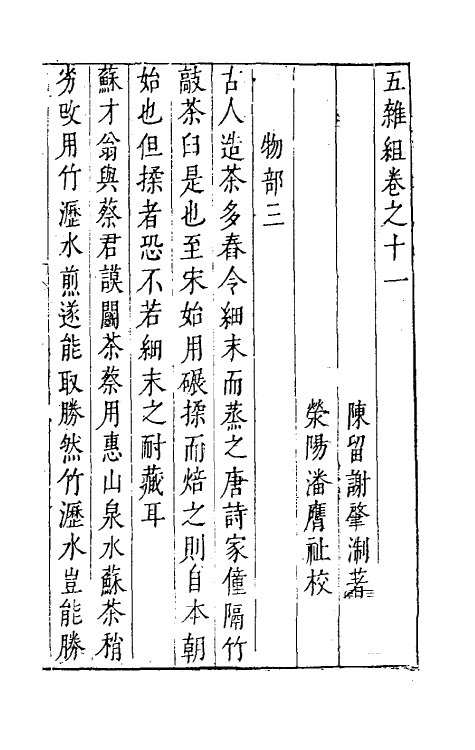 五雜組卷之十一
陳留謝肇淛著
滎陽潘膺祉校
物部三
古人造茶多舂令細末而蒸之唐詩家僮隔竹
敲茶臼是也至宋始用碾揉而焙之則自本朝
始也但揉者恐不若細末之耐藏耳
蘇才翁與蔡君謨鬬茶蔡用惠山泉水蘇茶稍
劣改用竹瀝水煎遂能取勝然竹瀝水豈能勝